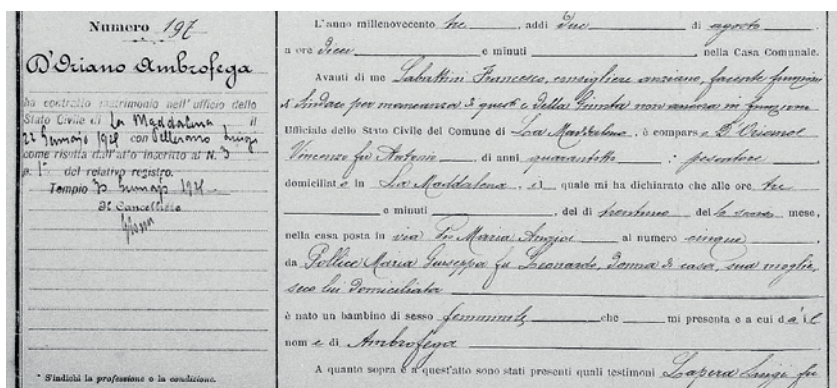 Numero 197
D'Oriano Ambrofega
ha contratto matrimonio nell'ufficio dello
Stato Civile di La Maddalena il
22 Gennaio 1928 con Luigi
come risulta dall'atto inserito al N. 3
p. 1ª del relativo registro.
Tempio Gennaio
Il Cancelliere
* S'indichi la professione o la condizione.
L'anno millenovecento tre, addì due di agosto
a ore dieci e minuti, nella Casa Comunale.
Avanti di me Sabattini Francesco, consigliere anziano, facente funzioni
di Sindaco per mancanza di questi e della Giunta non ancora in funzione
Ufficiale dello Stato Civile del Comune di La Maddalena, è comparso D'Oriano
Vincenzo fu Antonio, di anni quarantotto, pescatore
domiciliato in La Maddalena, il quale mi ha dichiarato che alle ore tre
e minuti, del dì trentuno del o scorso mese,
nella casa posta in via Maria al numero cinque,
da Pollice Maria Giuseppa fu Leonardo, donna di casa, sua moglie,
seco lui domiciliata
è nato un bambino di sesso femminile che mi presenta e a cui dà il
nome di Ambrofega
A quanto sopra e a quest'atto sono stati presenti quali testimoni Lapera Luigi fu